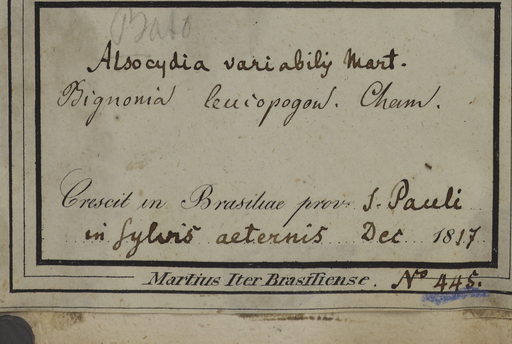 Alsocydia variabilis Mart.
Bignonia leucopogon. Cham.
Crescit in Brasiliae prov. S. Pauli
in sylvis aeternis Dec 1817
Martius Iter Brasiliense. No 445.